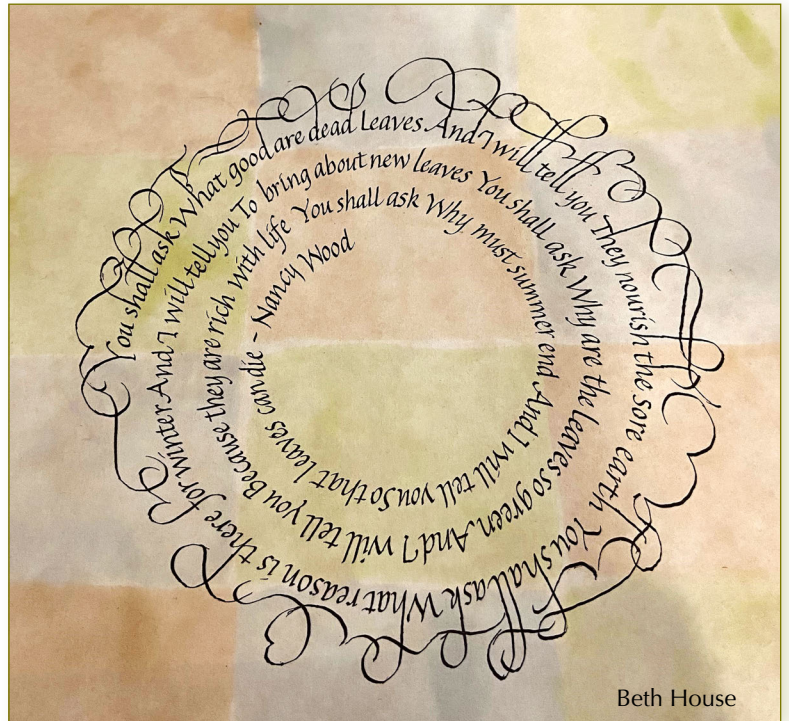 You shall ask What good are dead Leaves And I will tell you They nourish the sore earth You shall ask What reason is there for Winter And I will tell you To bring about new leaves You shall ask Why are the Leaves so green And I will tell you Because they are rich with life You shall ask Why must summer end And I will tell you So that leaves can die - Nancy Wood
Beth House